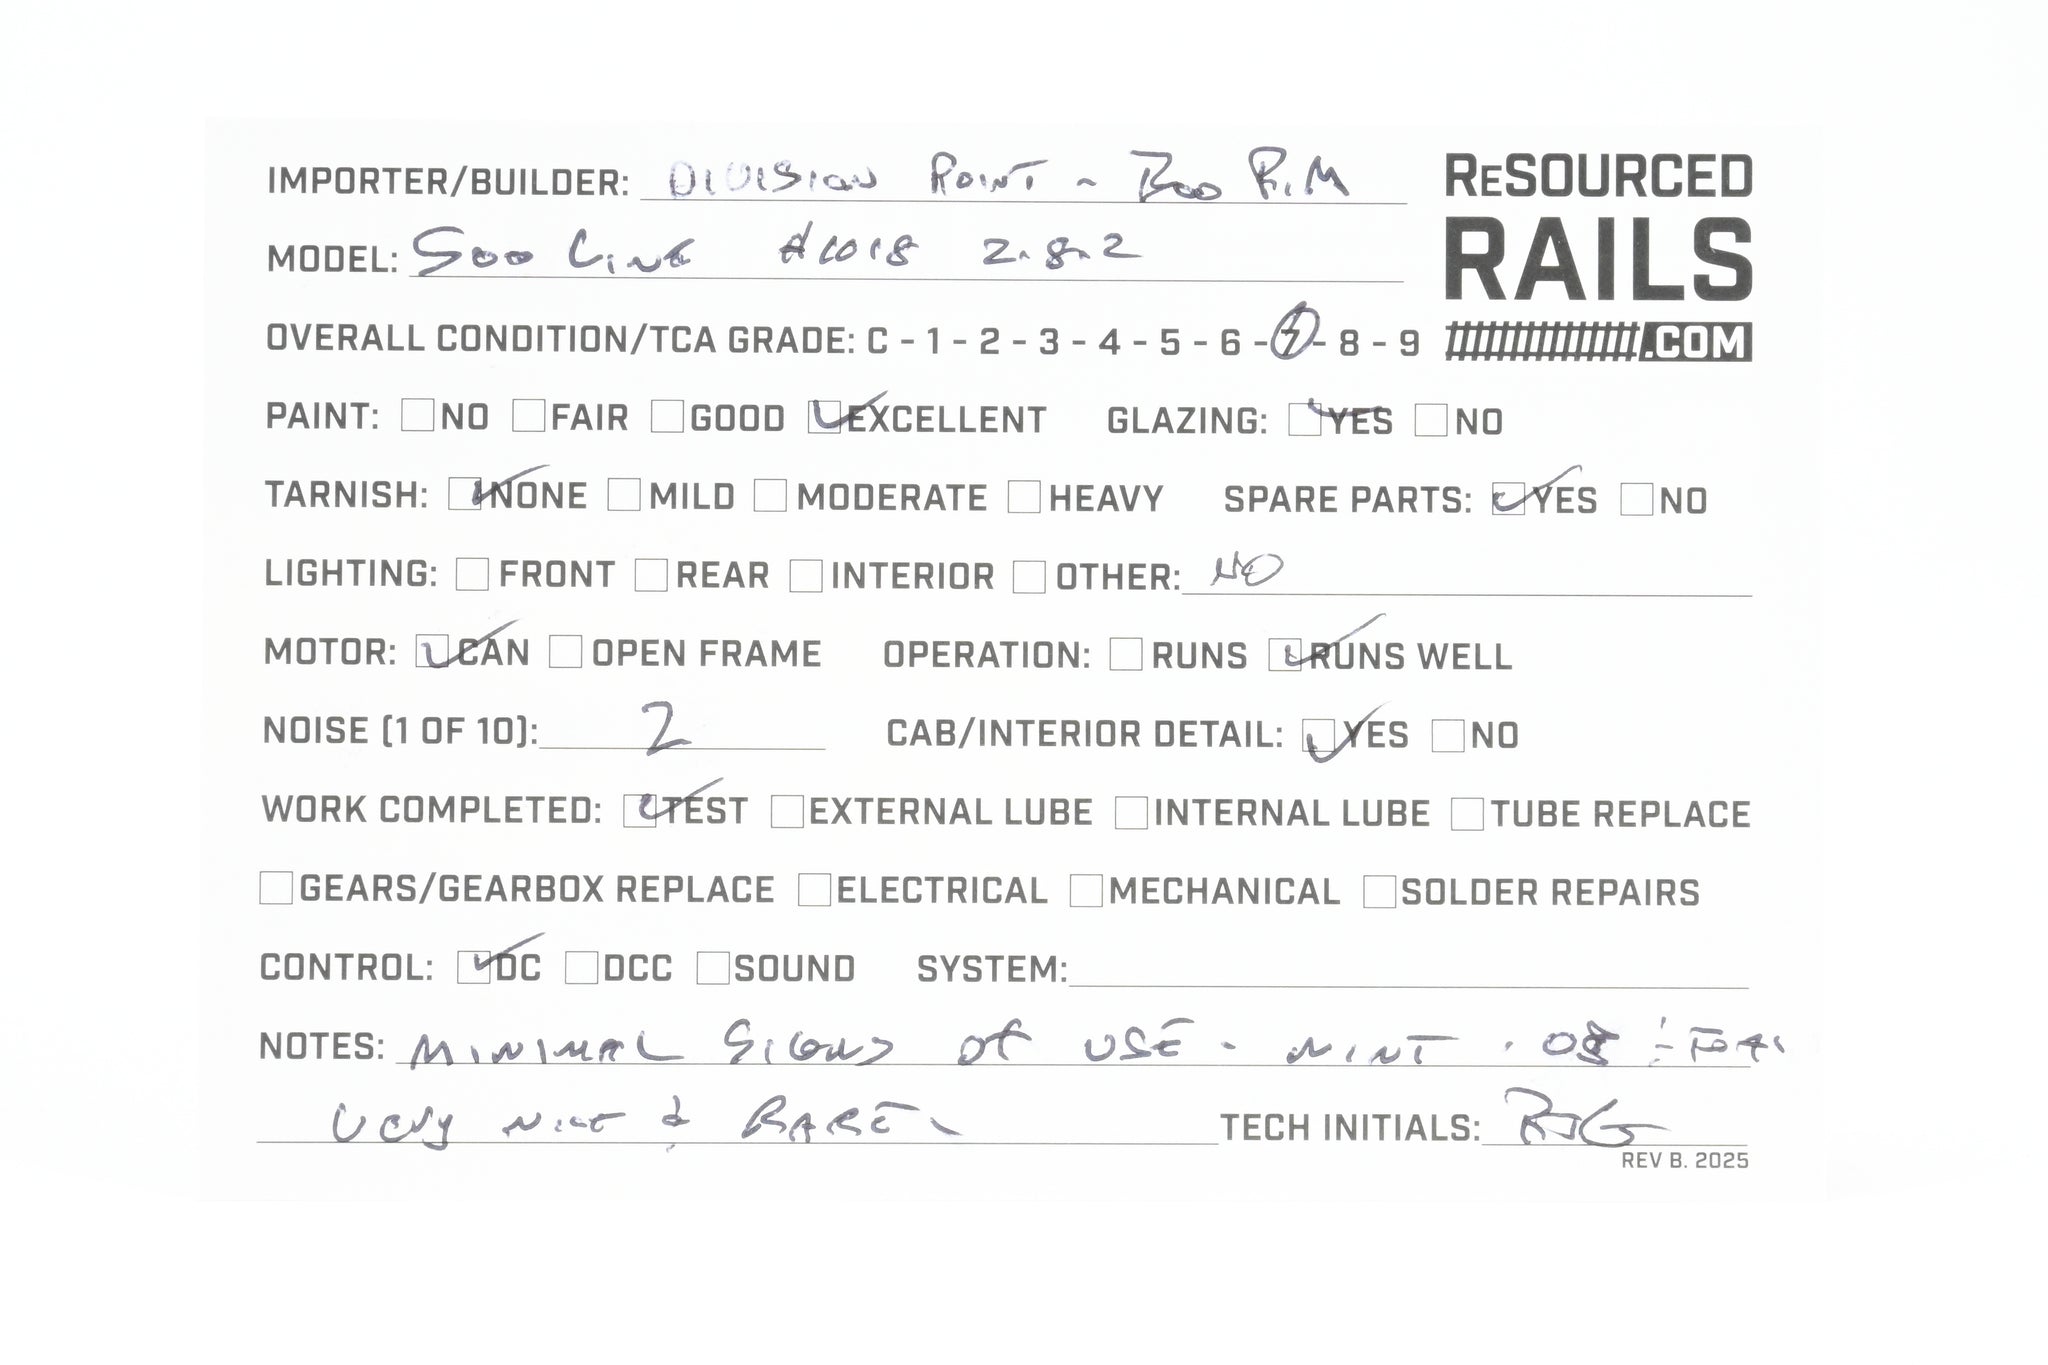 IMPORTER/BUILDER: DIVISION POINT - BOO RIM
RESOURCED
RAILS
.COM
MODEL: SOO LINE #1018 2-8-2
OVERALL CONDITION/TCA GRADE: C - 1 - 2 - 3 - 4 - 5 - 6 - 7 - 8 - 9
PAINT: NO FAIR GOOD EXCELLENT GLAZING: YES NO
TARNISH: NONE MILD MODERATE HEAVY SPARE PARTS: YES NO
LIGHTING: FRONT REAR INTERIOR OTHER: NO
MOTOR: CAN OPEN FRAME OPERATION: RUNS RUNS WELL
NOISE (1 OF 10): 2 CAB/INTERIOR DETAIL: YES NO
WORK COMPLETED: TEST EXTERNAL LUBE INTERNAL LUBE TUBE REPLACE
GEARS/GEARBOX REPLACE ELECTRICAL MECHANICAL SOLDER REPAIRS
CONTROL: DC DCC SOUND SYSTEM:
NOTES: MINIMAL SIGNS OF USE - MINT
VERY NICE & RARE - TECH INITIALS:
REV B. 2025